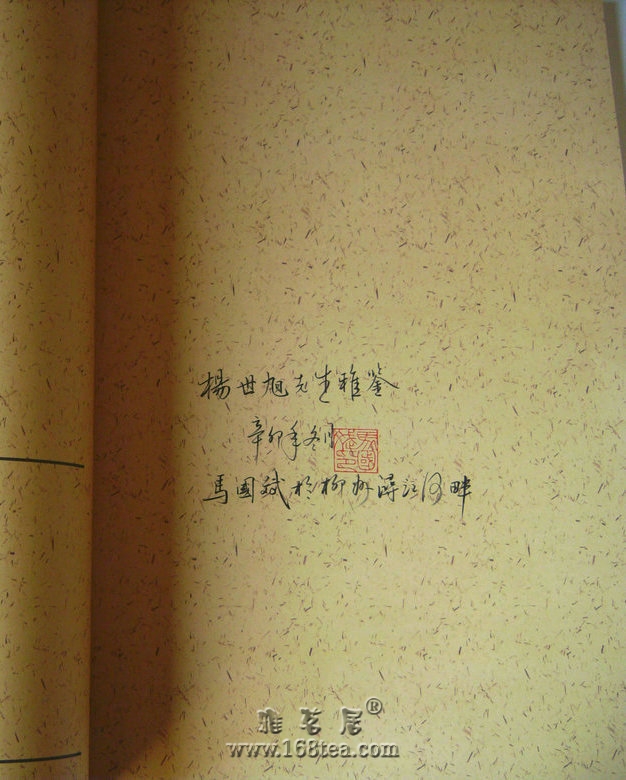 楊世旭先生雅鑒
辛卯年冬月
馬國斌於柳州潯江河畔
雅茗居®
www.168tea.com